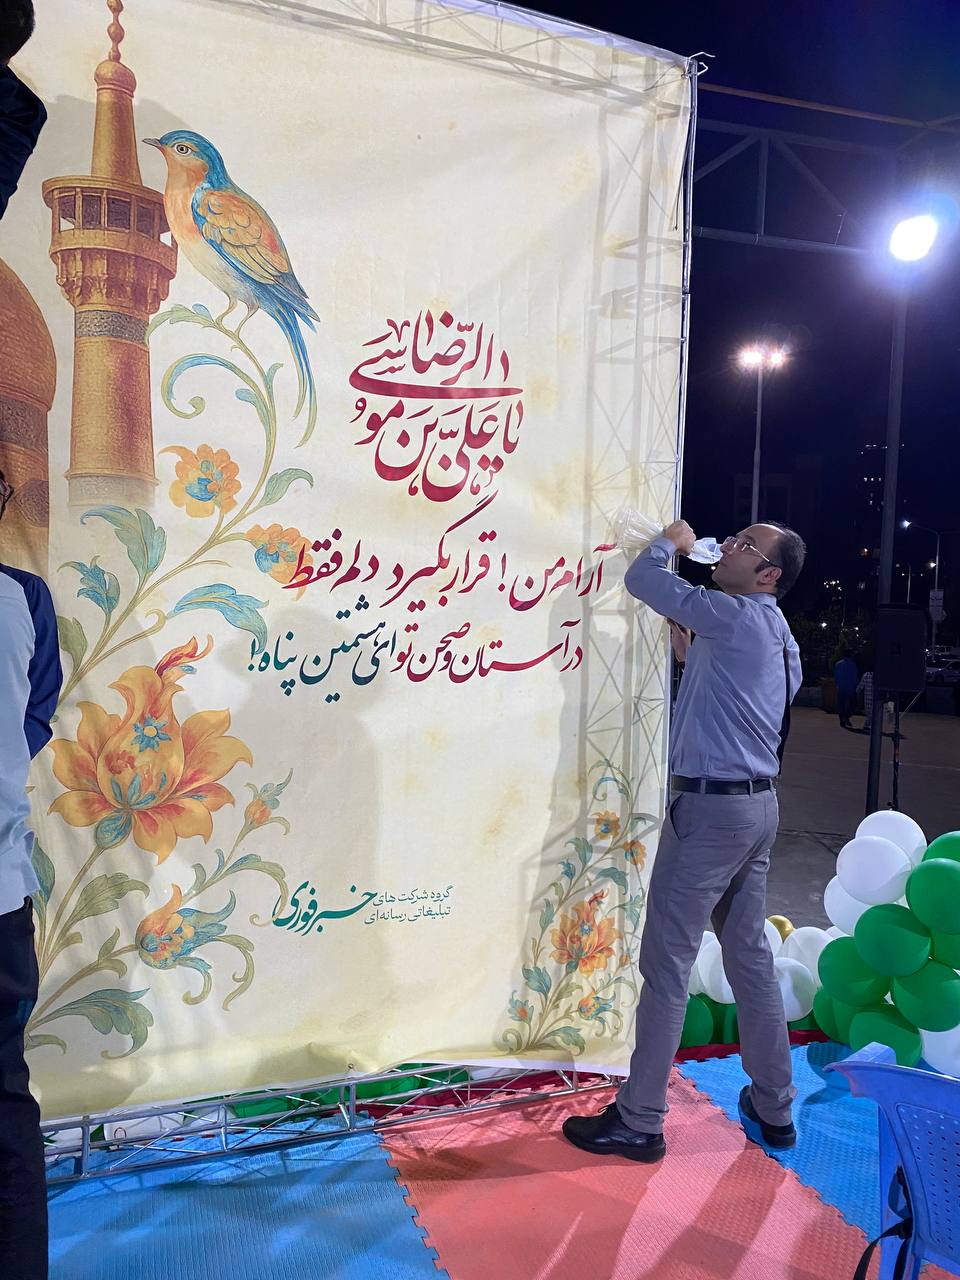 یا عَلیِّ بنَ موسَی الرّضا
آرام من! قرار بگیرد دلم فقط
در آستان و صحن تو ای هشتمین پناه!
گروه شرکت های
تبلیغاتی رسانه‌ای
خبرفوری